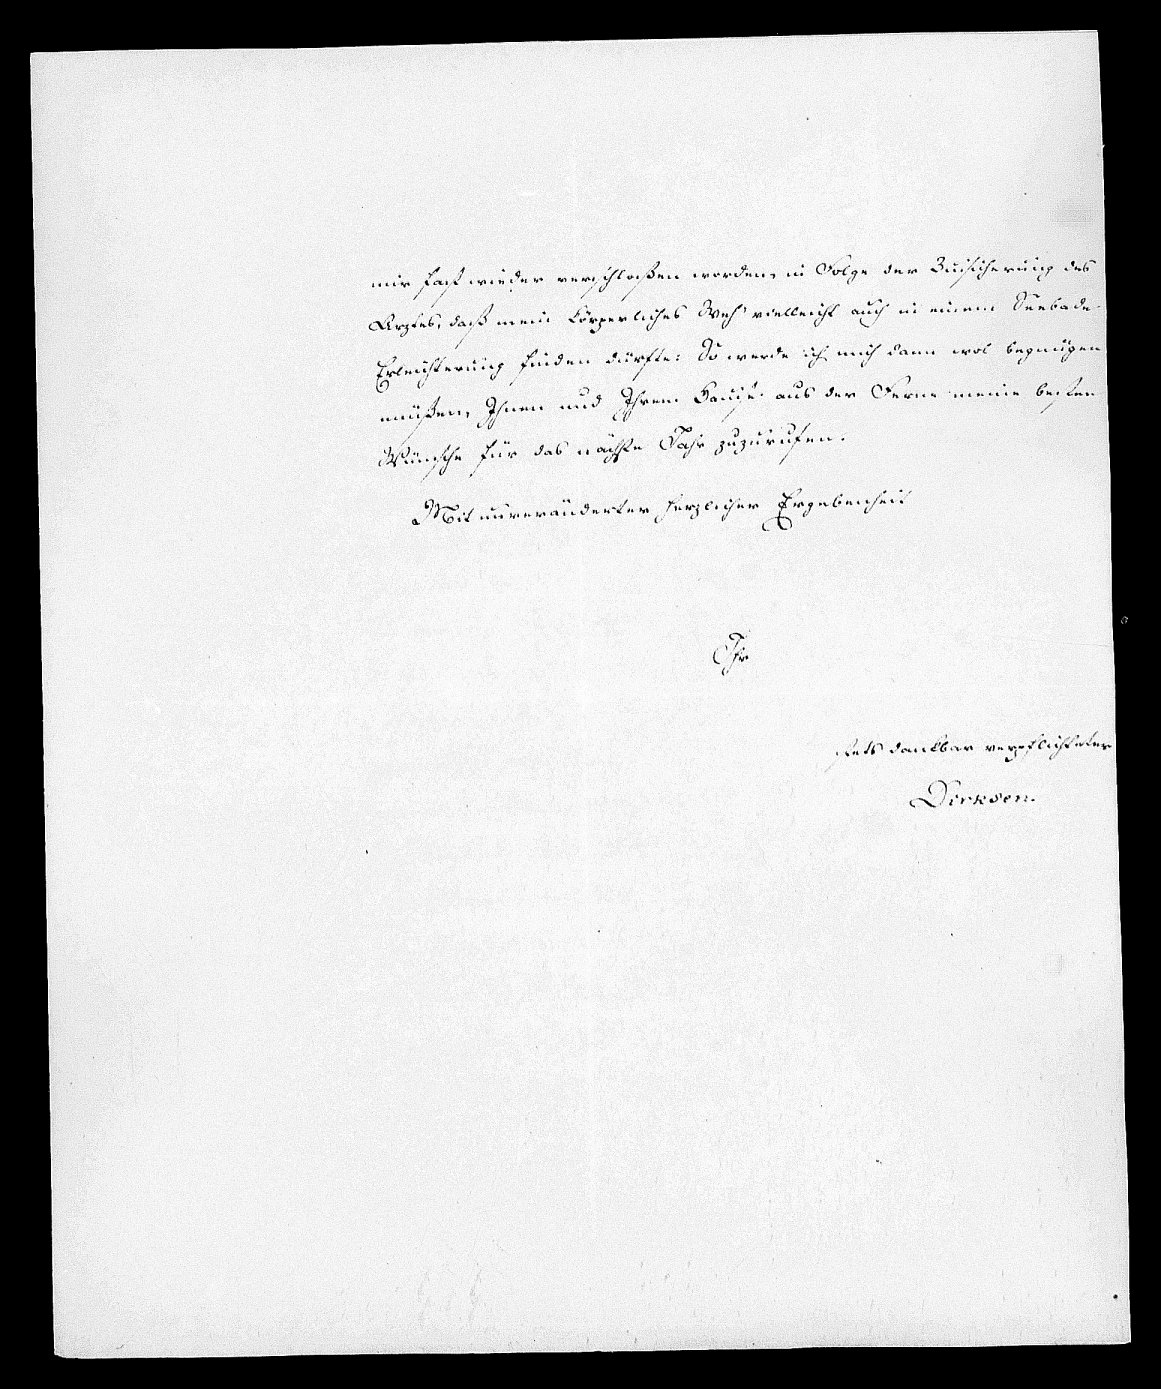 mir fast wieder verschloßen worden, in Folge der Zusicherung des
Arztes, daß mein körperliches Weh' vielleicht auch in einem Seebade
Erleichterung finden dürfte: So werde ich mich dann wol begnügen
müßen, Ihnen und Ihrem Hause aus der Ferne meine besten
Wünsche für das nächste Jahr zuzurufen.
Mit unveränderter herzlicher Ergebenheit
Ihr
stets dankbar verpflichteter
Dirksen.